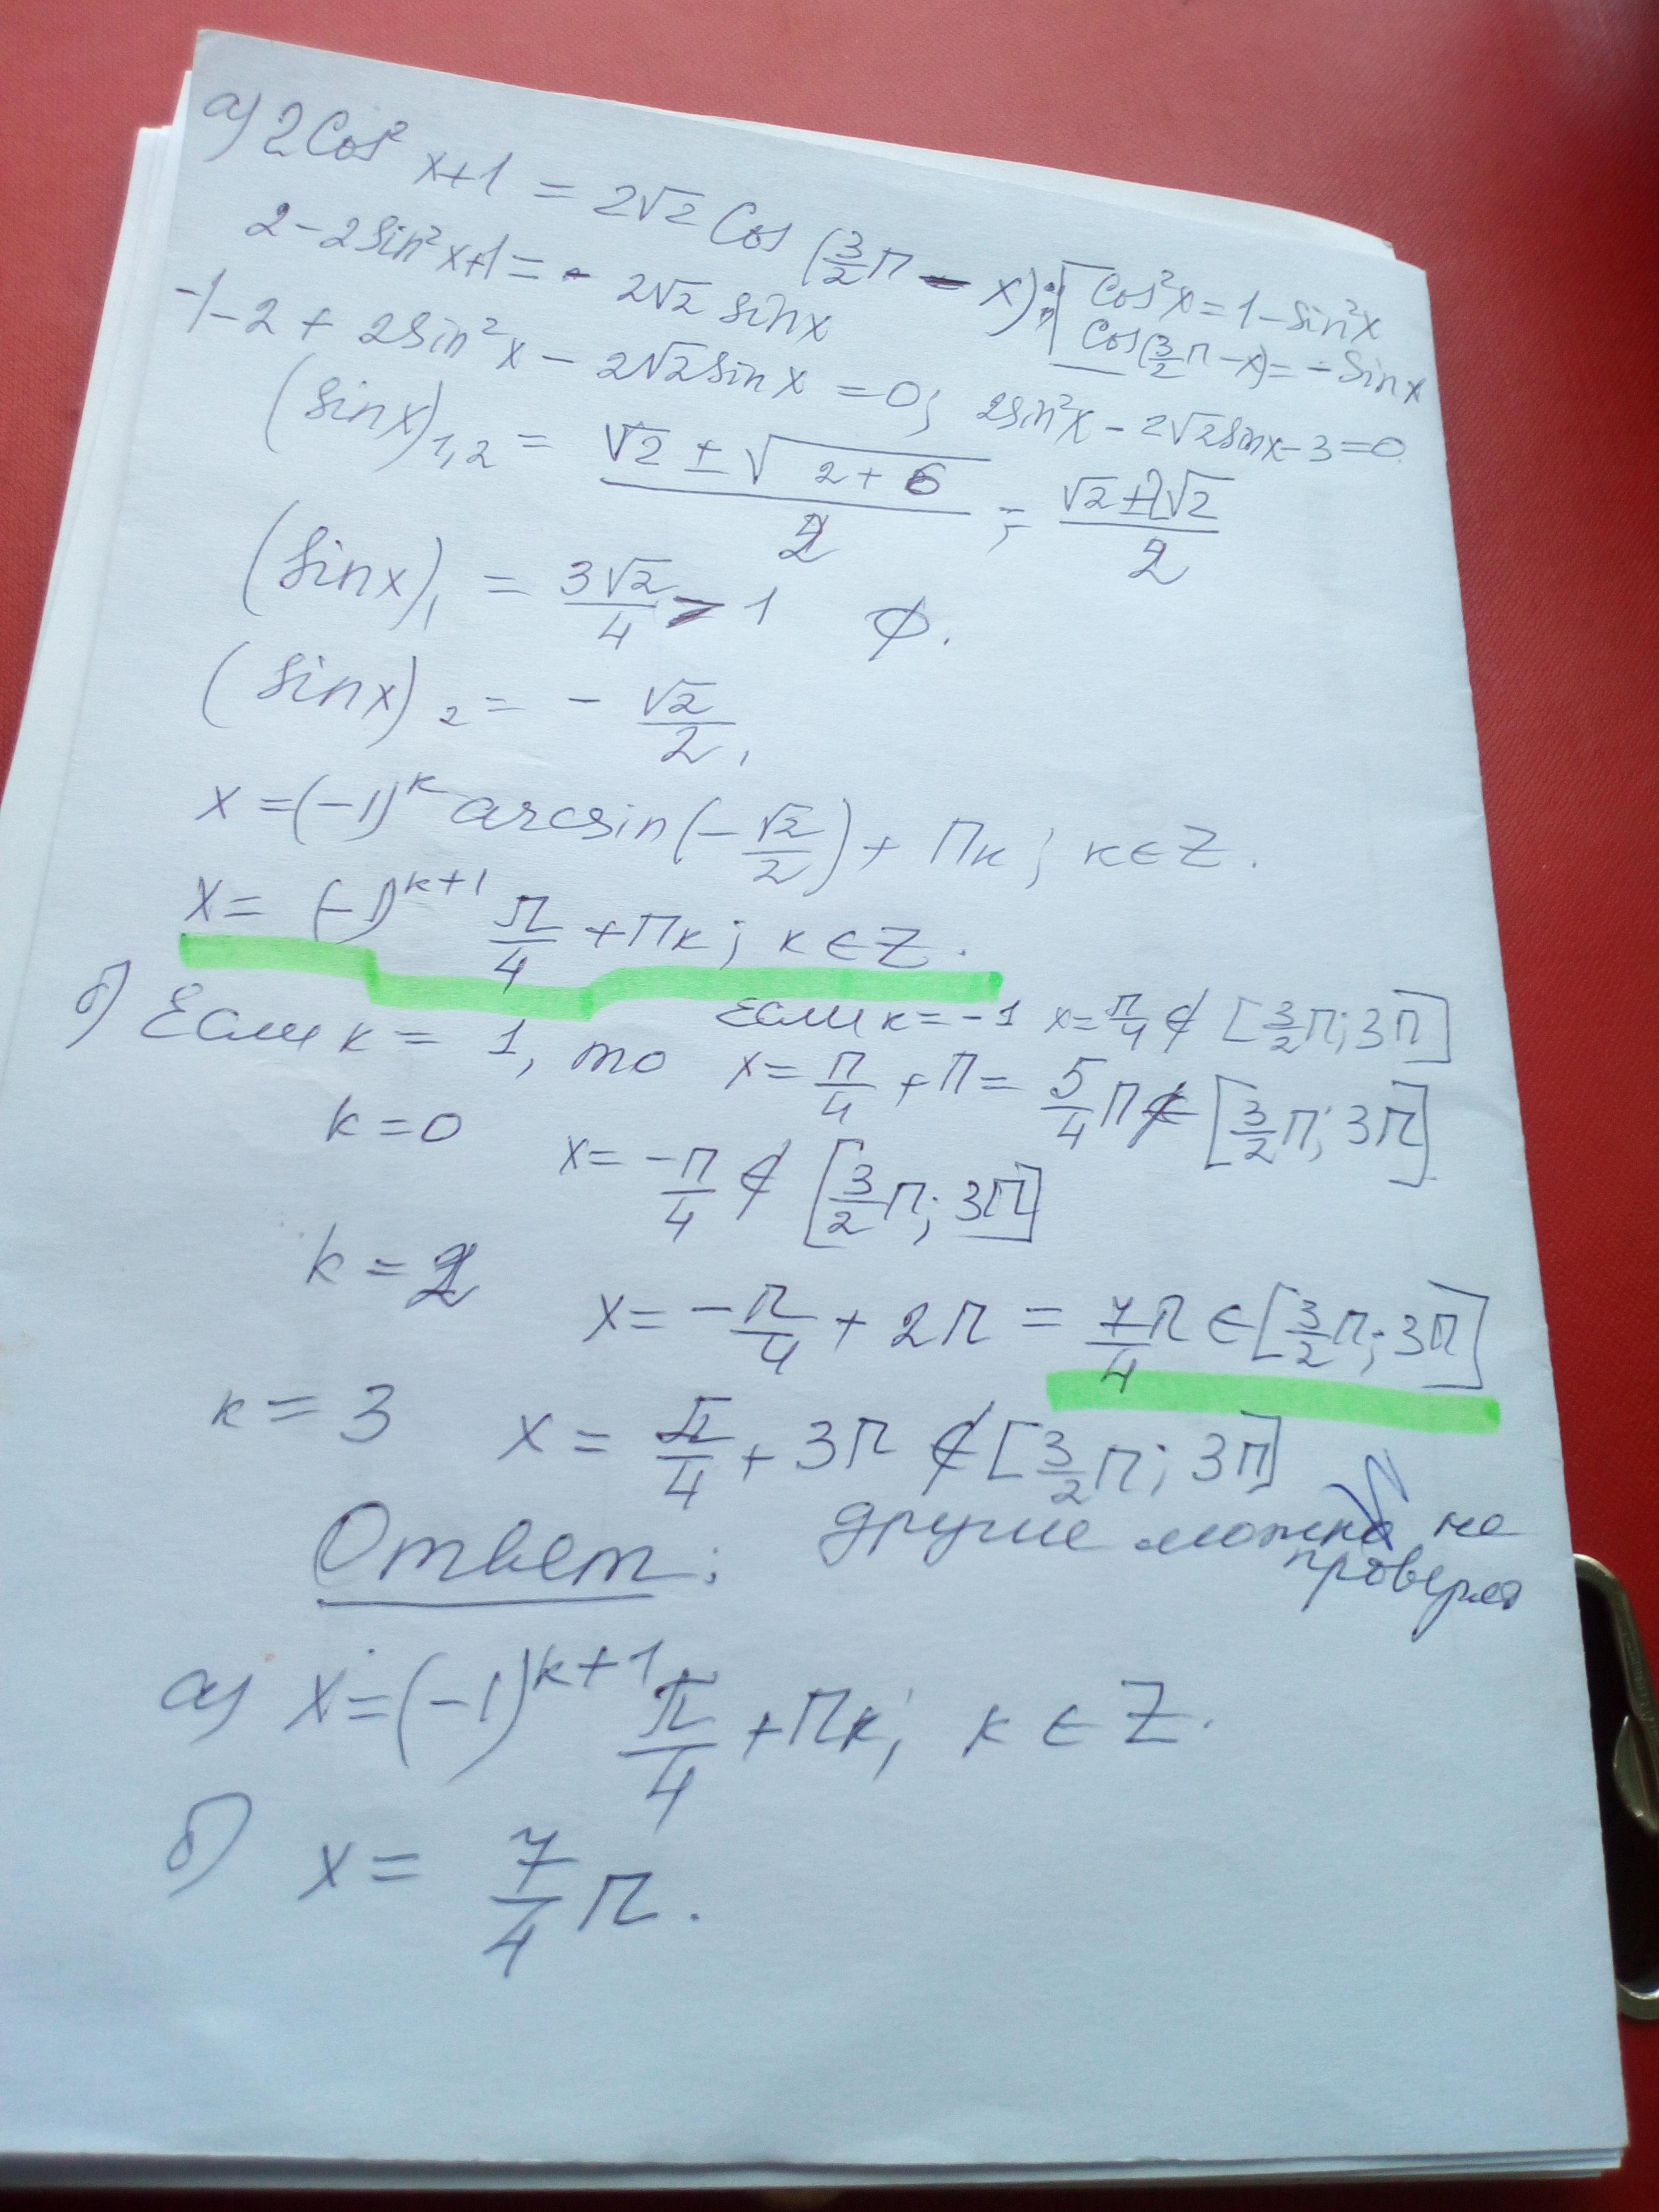 а) 2Cos² x+1 = 2√2 Cos (3/2 π - x);
Cos²x = 1 - sin²x
Cos(3/2 π - x) = - sin x
2 - 2sin²x+1 = - 2√2 sinx
-1 - 2 + 2sin²x - 2√2sinx = 0; 2sin²x - 2√2sinx - 3 = 0.
(sinx)₁,₂ = (√2 ± √(2+6))/2 = (√2 ± 2√2)/2
(sinx)₁ = 3√2/4 > 1 ∅.
(sinx)₂ = - √2/2,
x = (-1)ᵏ arcsin(- √2/2) + πк; к ∈ Z.
x = (-1)ᵏ⁺¹ π/4 + πк; к ∈ Z.
б) Если к = -1 x = π/4 ∉ [3/2 π; 3π]
Если к = 1, то x = π/4 + π = 5/4 π ∉ [3/2 π; 3π]
k = 0 x = -π/4 ∉ [3/2 π; 3π]
k = 2 x = - π/4 + 2π = 7/4 π ∈ [3/2 π; 3π]
к = 3 x = π/4 + 3π ∉ [3/2 π; 3π]
другие можно не
Ответ:
а) x = (-1)ᵏ⁺¹ π/4 + πк; к ∈ Z.
б) x = 7/4 π.